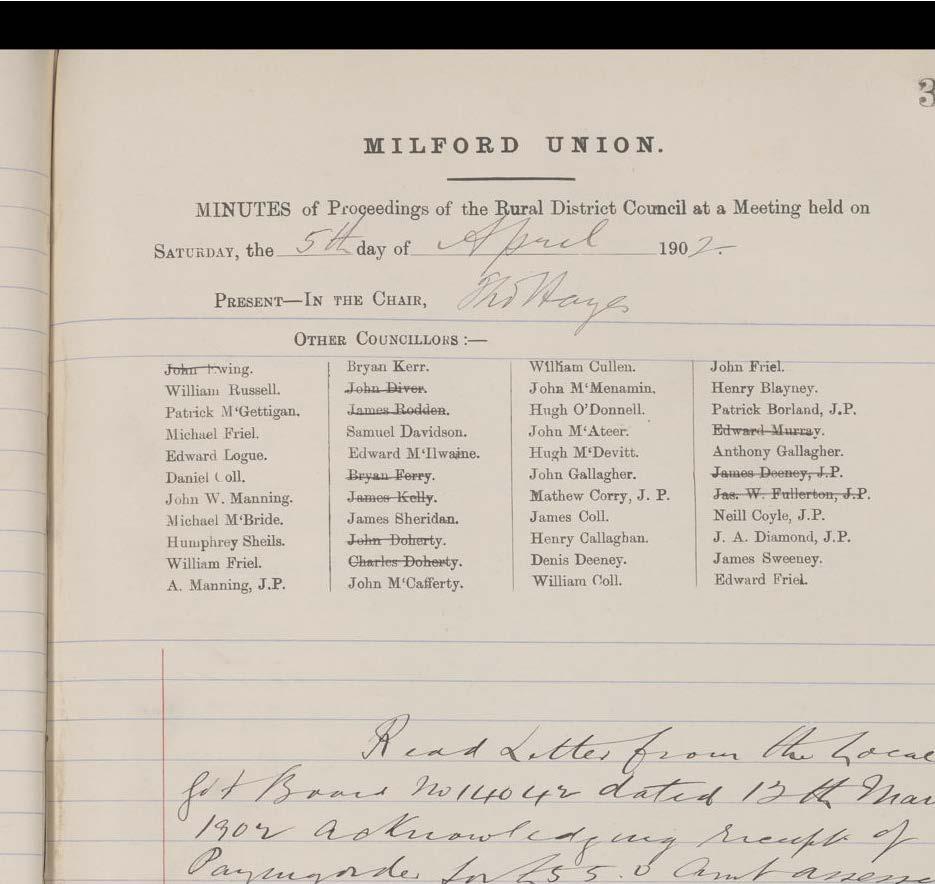 3
MILFORD UNION.
MINUTES of Proceedings of the Rural District Council at a Meeting held on
SATURDAY, the 5th day of April 1902.
PRESENT—IN THE CHAIR, Thos Hayes
OTHER COUNCILLORS :—
John Ewing.
William Russell.
Patrick M'Gettigan.
Michael Friel.
Edward Logue.
Daniel Coll.
John W. Manning.
Michael M'Bride.
Humphrey Sheils.
William Friel.
A. Manning, J.P.
Bryan Kerr.
John Diver.
James Rodden.
Samuel Davidson.
Edward M'Ilwaine.
Bryan Ferry.
James Kelly.
James Sheridan.
John Doherty.
Charles Doherty.
John M'Cafferty.
William Cullen.
John M'Menamin.
Hugh O'Donnell.
John M'Ateer.
Hugh M'Devitt.
John Gallagher.
Mathew Corry, J. P.
James Coll.
Henry Callaghan.
Denis Deeney.
William Coll.
John Friel.
Henry Blayney.
Patrick Borland, J.P.
Edward Murray.
Anthony Gallagher.
James Deeney, J.P.
Jas. W. Fullerton, J.P.
Neill Coyle, J.P.
J. A. Diamond, J.P.
James Sweeney.
Edward Friel.
Read Letter from the Local
Gvt Board No 14042 dated 12th Mar
1902 acknowledging receipt of
for £55.0 Amt assess